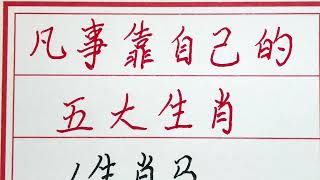 凡事靠自己的
五大生肖
1生肖马